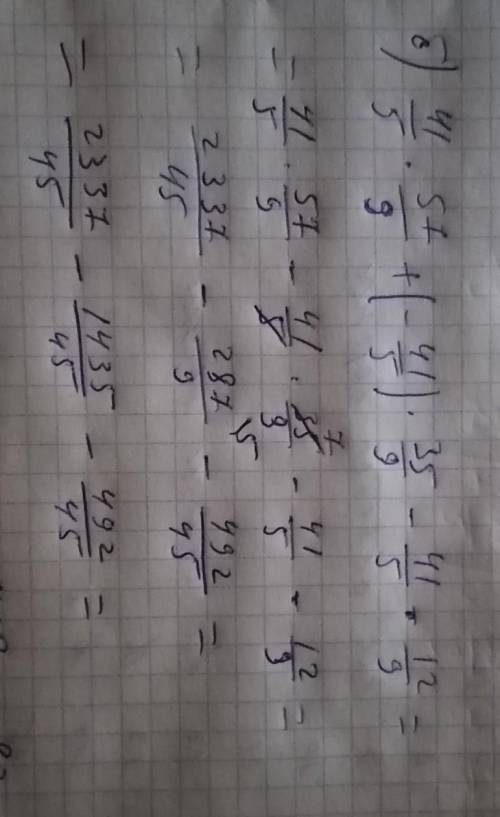 б) 41/5 · 57/9 + (- 41/5) · 35/9 - 41/5 · 12/9 =
= 41/5 · 57/9 - 41/5 · 35/9 7 - 41/5 · 12/9 =
= 2337/45 - 287/9 - 492/45 =
= 2337/45 - 1435/45 - 492/45 =